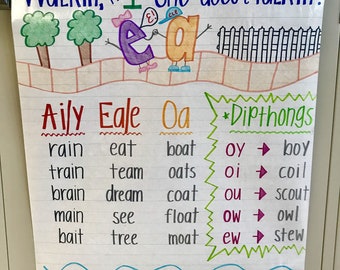 e a
Ai/y Ea/e Oa *Dipthongs
rain eat boat oy → boy
train team oats oi → coil
brain dream coat ou → scout
main see float ow → owl
bait tree moat ew → stew